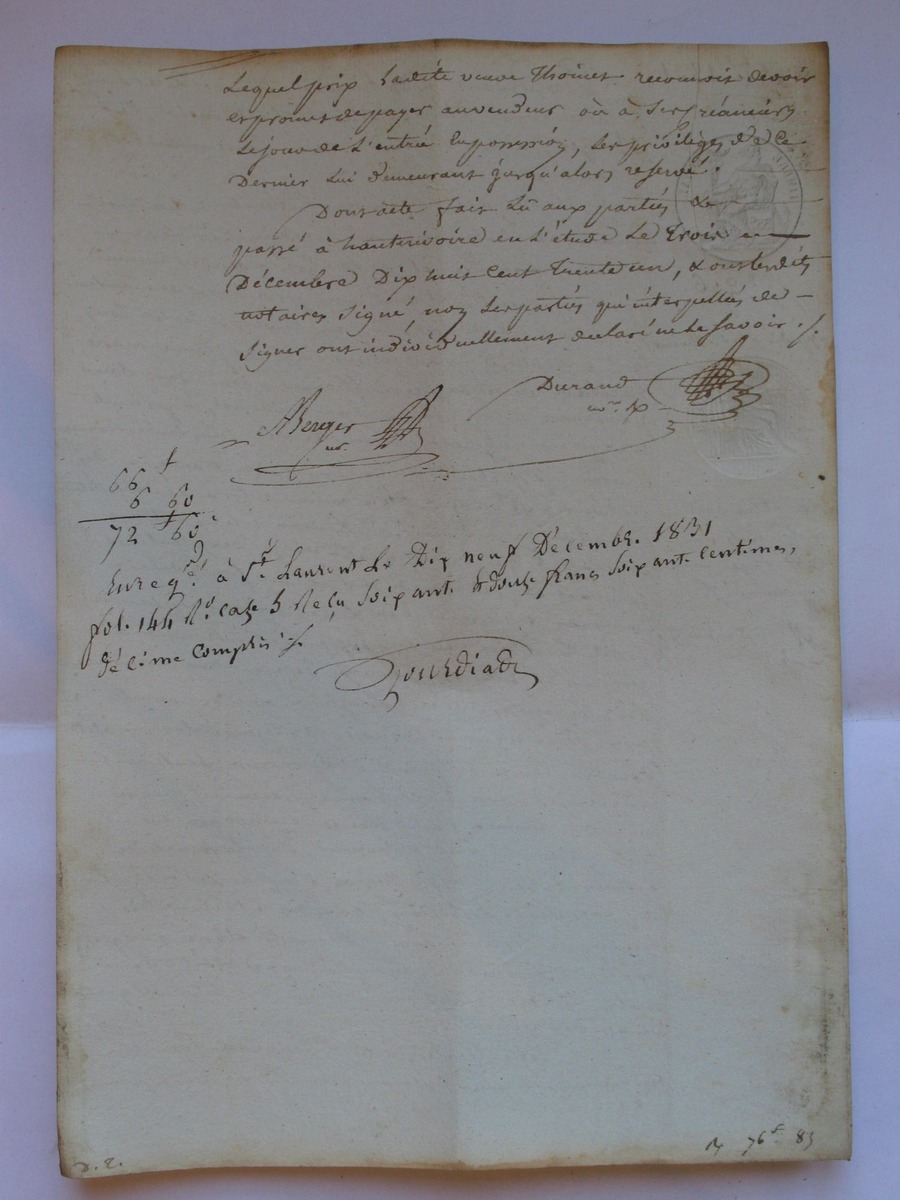 Lequel prix ladite veuve Thoinet reconnoit devoir
et promet de payer au vendeur où à ses créanciers
Le jour de l'entrée en possession, Les privilèges de Ce
Dernier lui demeurant jusqu'alors reservé.
Dont acte fait Lû aux parties &
passé à hauterivoire en L'étude Le trois
Décembre Dix huit cent trente un, & ont lesdits
notaires signé non Les parties qui interpellés de
signer ont individuellement declaré ne le savoir. /.
Durand
ABerger
nre
66 f
6 60
72 f 60 c
Enregé à St. Laurent Le Dix neuf Décembre 1831
fol. 144 Ro. case 5 Reçu Soixante & douze francs Soixante Centimes,
décime compris ./.
D. E.
76 f 85